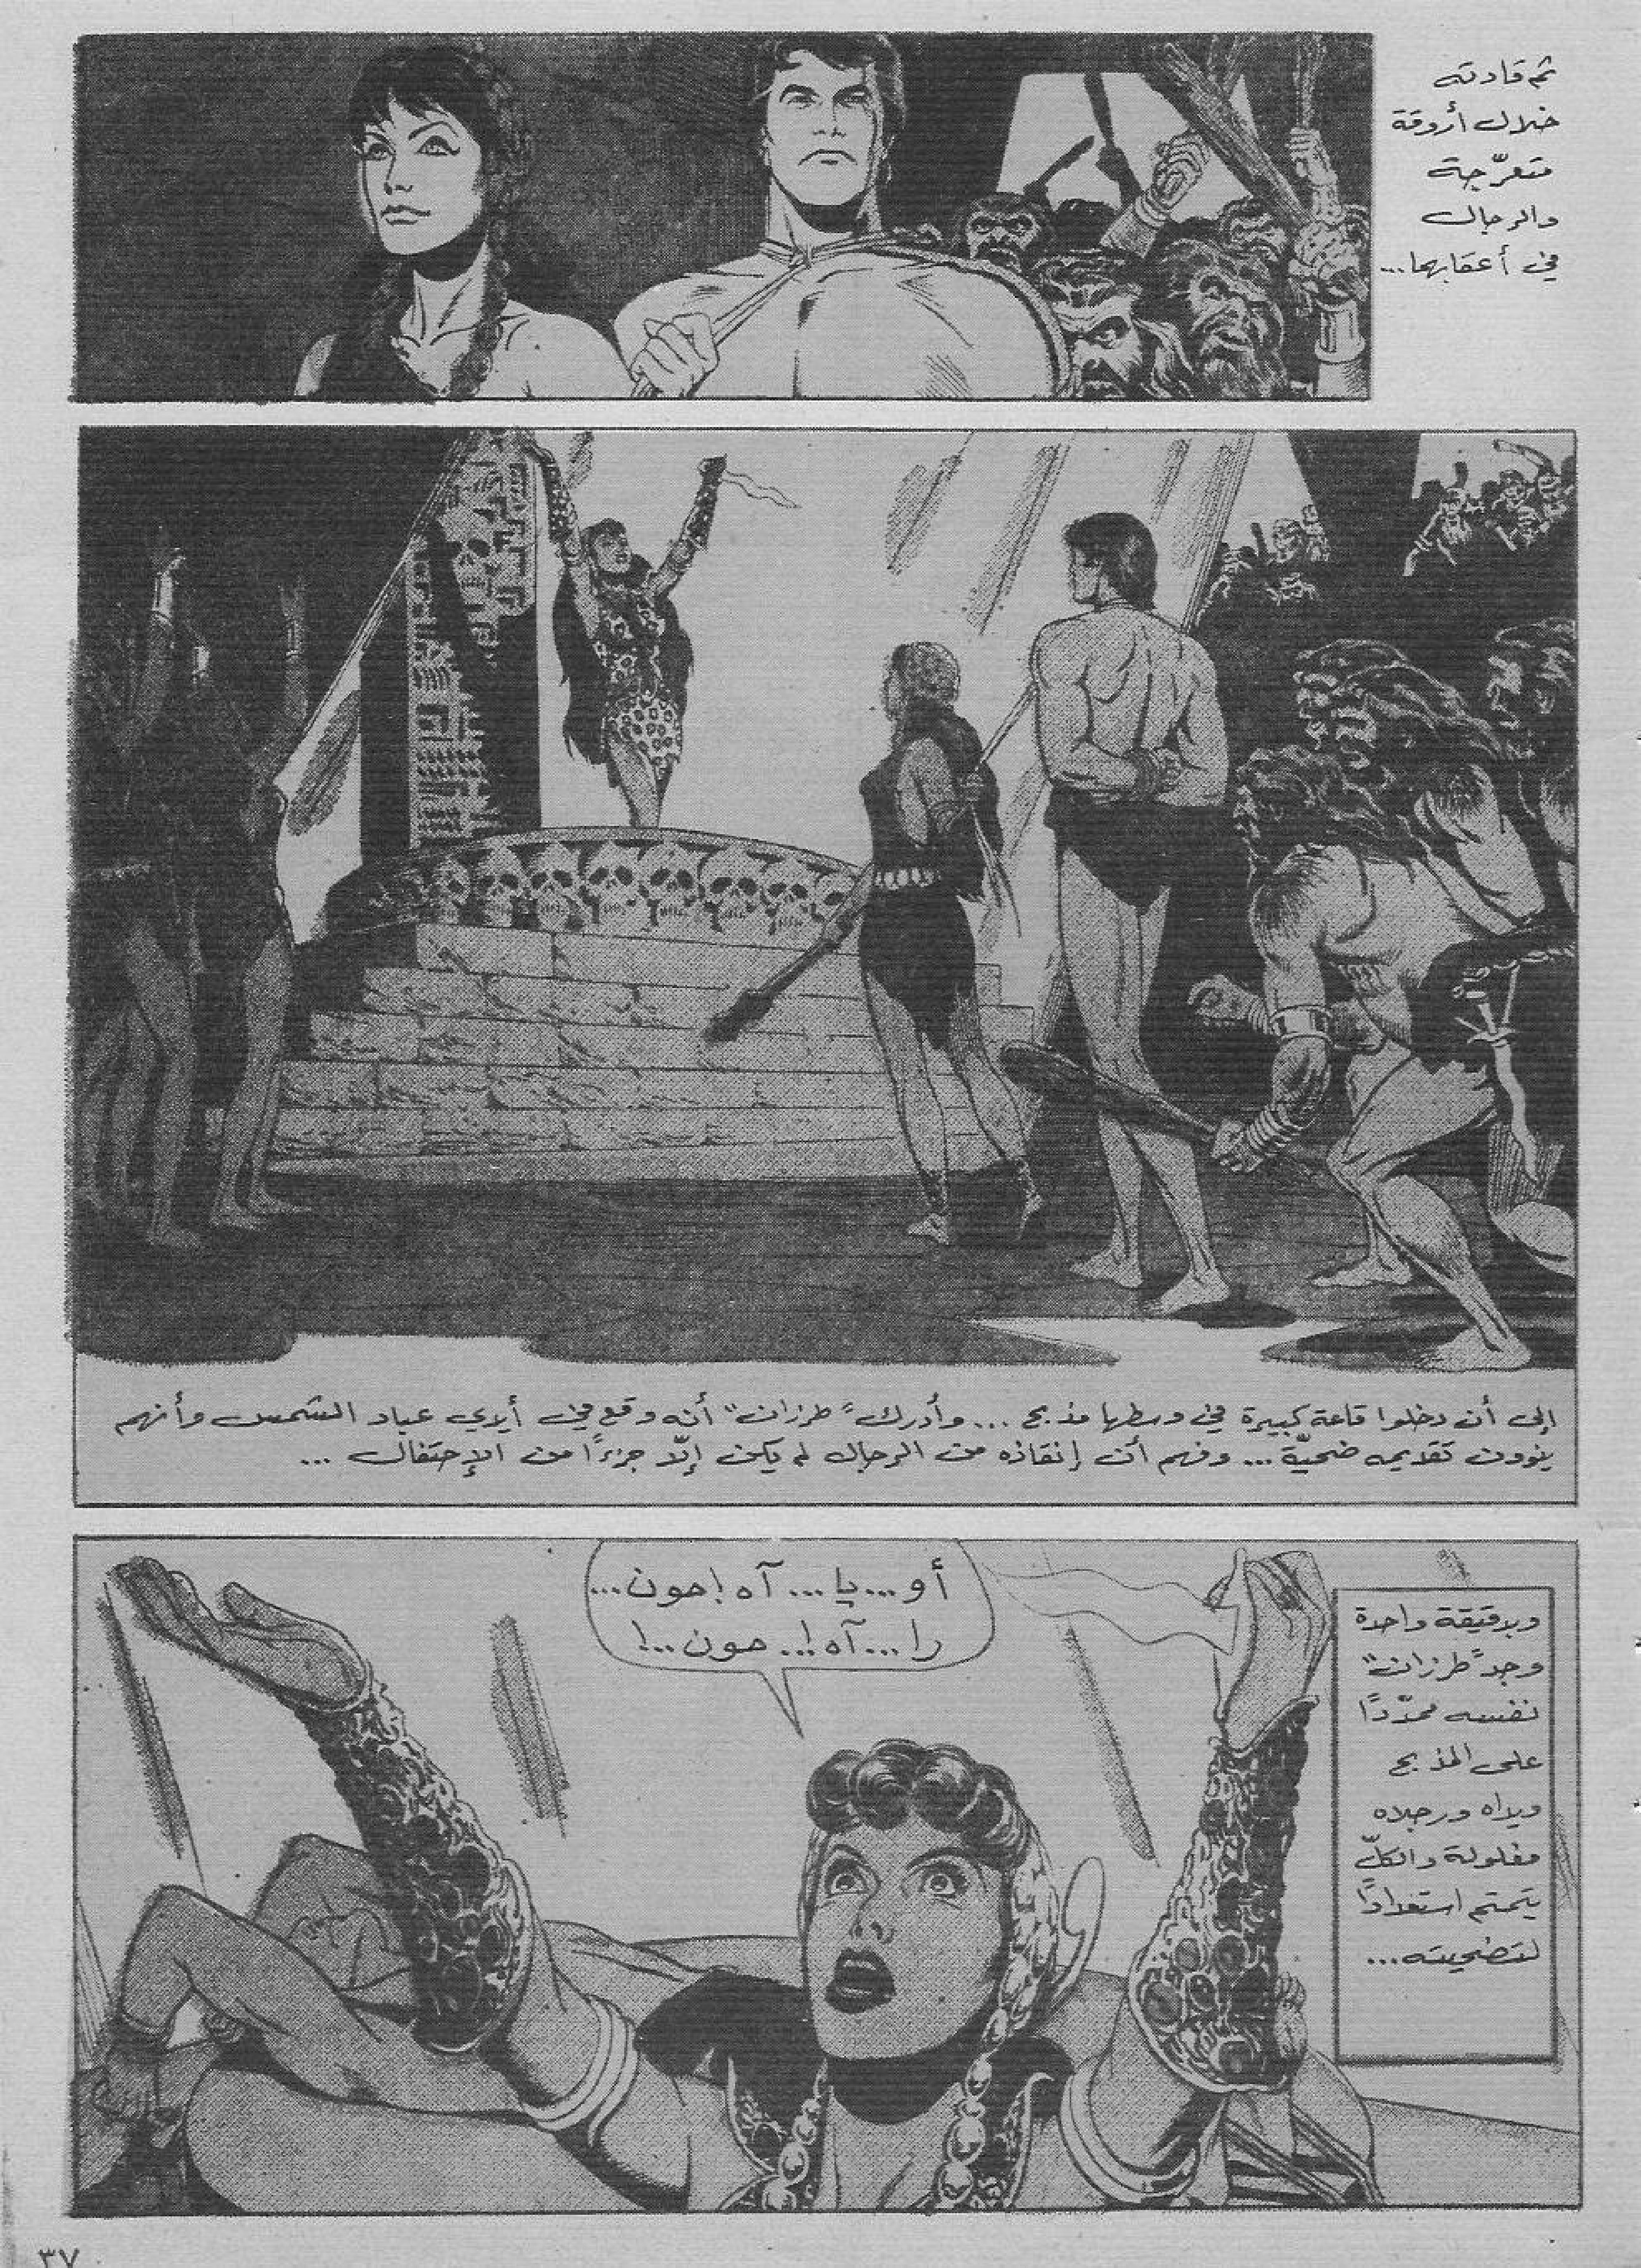 ثم قادته
خلال أروقة
متعرّجة
والرجال
في أعقابهما...
إلى أن دخلوا قاعة كبيرة في وسطها مذبح ... وأدرك "طرزان" أنه وقع في أيدي عباد الشمس وأنهم
ينوون تقديمه ضحيّة... وفهم أن إنقاذه من الرجال لم يكن إلّا جزءًا من الإحتفال ...
أو...يا... آه! حون...
را...آه!.. حون..!
وبدقيقة واحدة
وجد "طرزان"
نفسه ممدّدًا
على المذبح
ويداه ورجلاه
مغلولة والكلّ
يتمتم استعدادًا
لتضحيته...
٣٧